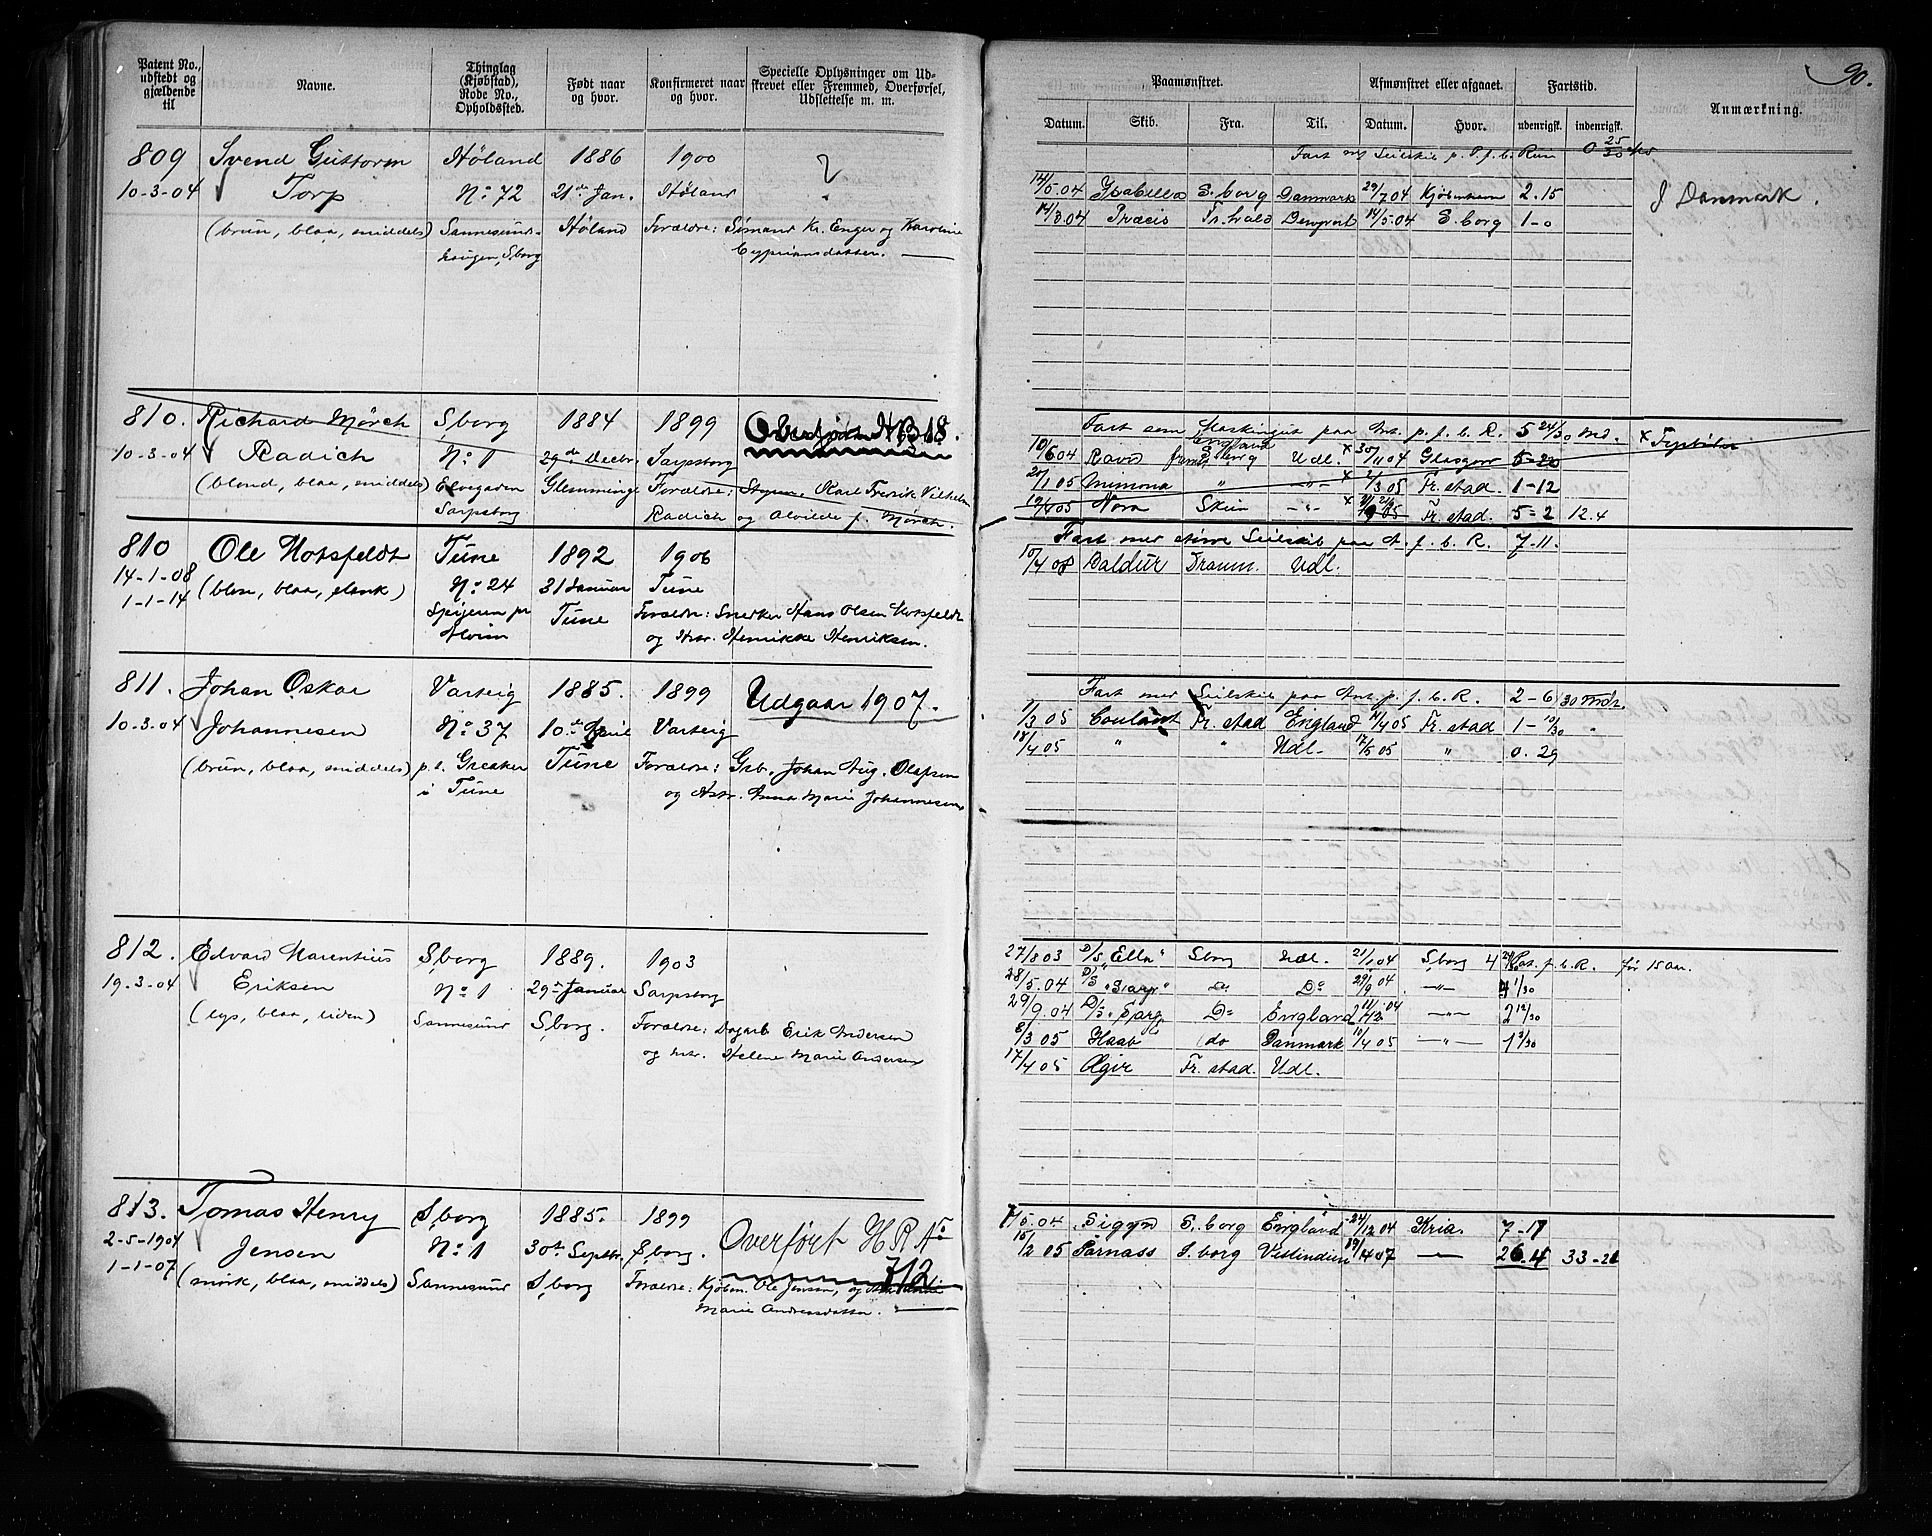 90.
Patent No., udstedt og gjældende til
Navne.
Thinglag (Kjøbstad), Rode No., Opholdssted.
Født naar og hvor.
Konfirmeret naar og hvor.
Specielle Oplysninger om Udskrevet eller Fremmed, Overførsel, Udslettelse m. m.
Paamønstret.
Afmønstret eller afgaaet.
Fartstid.
Anmærkning.
Datum. Skib. Fra. Til. Datum. Hvor. udenrigsk. indenrigsk.
809 Svend Guttorm Høland 1886 1900
10-3-04 Torp No 72 21de Jan. Høland
(brun, blaa, middels) Sannesund- Høland Forældre: Sømand Kr. Enger og Karoline
haugen, S,borg Cypriansdatter.
14/5.04 Ysabella S.borg Danmark 29/7 04 Kjøbenhavn 2.15 I Danmark.
14/3.04 Præcis Fr.hald 14/5.04 S.borg 1-0
810. Richard Mørch S,borg 1884 1899
10-3-04 Radich No 1 29de Decbr. Sarpsborg
(blond, blaa, middels) Glemminge Forældre: Karl Fredrik Vilhelm
Sarpsborg Radich og Alvilde f. Mørch.
Fart som paa Ant. p. f. b. R. 5 24/30 md.
England
10/6 04 Ravn S,borg Udl. x 30/11 04 Glasgow 5-20
20/1 05 Mimona " -"- x Fr.stad. 1-12
Nora Skien -"- x Fr.stad. 5-2 12.4
810 Ole Hotsfeldt Tune 1892 1906
14-1-08 No 24 31 Januar Tune
1-1-14 (blon, blaa, slank) Tune Forældre: Snedker Hans Olsen Hotsfeldt
Alvim og Hstr. Henrikke Henriksen.
Fart med større Seilskib paa A. f. b. R. 7-11.
10/4 08 Baldur Dramm. Udl.
811. Johan Oskar Varteig 1885. 1899 Udgaar 1907.
10-3-04 Johannesen No 37 10de April Varteig
(brun, blaa, middels) p.t. Greaker Tune Forældre: Grb. Johan Aug. Olafsen
i Tune og Hstr. Anna Marie Johannesen
Fart med Seilskib paa Ant. p. f. b. R. 2-6/30 Mdr.
1/3 05 Coulant Fr.stad England 11/4 05 Fr.stad 1-10/30 "
18/4 05 " " Udl- 17/5 05 " 0.29
812. Edvard Marentius S,borg 1889. 1903
19-3-04 Eriksen No 1 29de Januar Sarpsborg
(lys, blaa, liden) Sannesund S,borg. Forældre: Dagarb. Erik Andersen
og hstr. Helene Marie Andersen
27/8 03 D/S "Ella" S.borg Udl. 21/1 04 S,borg 4 f. b. R. før 15 Aar.
28/5.04 D/S "Sarp" Do Do 29/9 04 -"- 4 1/30
29/9.04 D/S "Sarp Do England -"- 2 12/30
8/3 05 Haab do Danmark 10/4 05 -"- 1 3/30
17/4 05 Ægir Fr.stad. Udl.
813. Tomas Henry S,borg 1885. 1899 Overført H R No
2-5-1904 Jensen No 1 30te Septbr. S,borg. 712
1-1-07 (mørk, blaa, middels) Sannesund S,borg Forældre: Kjøbm. Ole Jensen, og
Marie Andreasdatter.
7/5.04 Sigyn S.borg England 24/12 04 Kria. 7-17
15/2 05 Parnass S.borg Vestindien 19/4 07 -"- 26.4 33-21